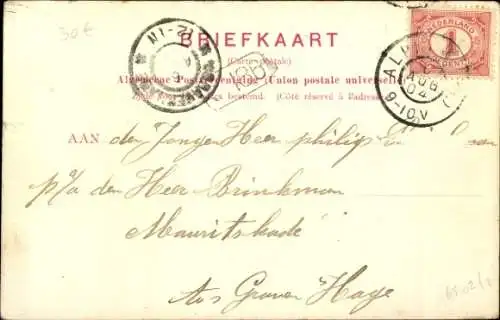 30€
BRIEFKAART
(Carte postale)
Algemeene Postvereeniging (Union postale universelle)
Zijde voor het adres bestemd. (Côté réservé à l'adresse)
NEDERLAND
1
CENT
11-12
AUG
04
9-10V
AAN den Jongen Heer philip
p/a den Heer Brinkman
Mauritskade
's Graven Hage